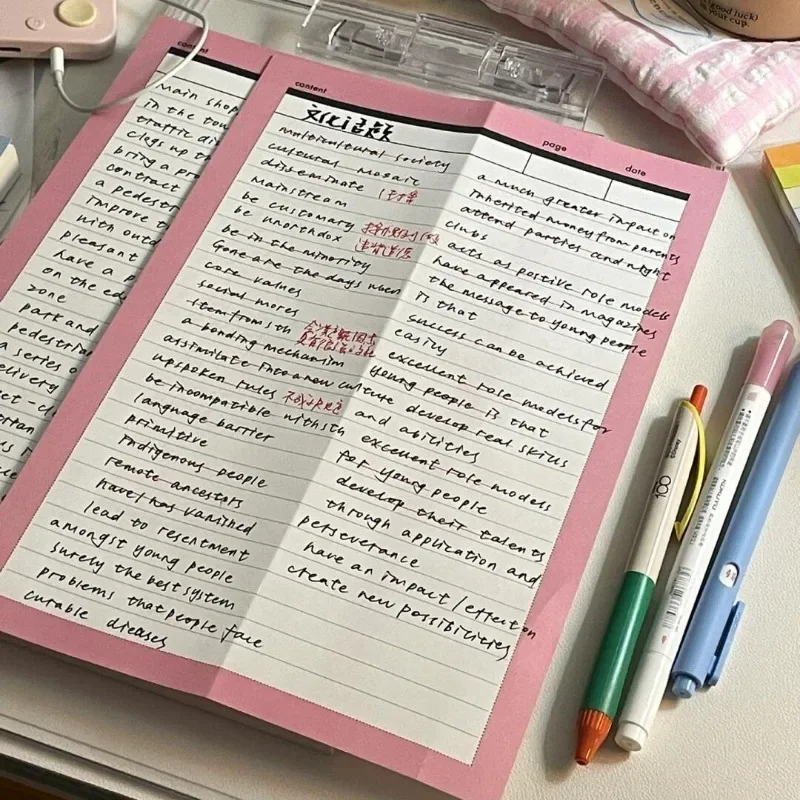 good luck)
in your cup.
content
Main shop
in the tow
traffic di
clogs up t
bring a pr
contract
a pedest
improve t
with outd
pleasant
have a p
on the ed
zone
park and
pedestria
a series o
delivery
content
page
date
文化话题
multicultural society
cultural mosaic
disseminate 传播
mainstream
be customary
be unorthdox
be in the minority
Gone are the days when
core values
social mores
item from sth
a bonding mechanism
assimilate into a new culture
unspoken rules
be incompatible with sth
language barrier
primitive
indigenous people
remote ancestors
have/has vanished
lead to resentment
amongst young people
surely the best system
problems that people face
curable dieases
a much greater impact on
inherited money from parents
attend parties and night
clubs
acts as postive role models
have appeared in magazines
the message to young people
is that
success can be achieved
easily
excellent role models for
young people is that
develop real skills
and abilities
excellent role models
for young people
develop their talents
through application and
perseverance
have an impact/effect on
create new possibilities
100
Disney
KOKUYO